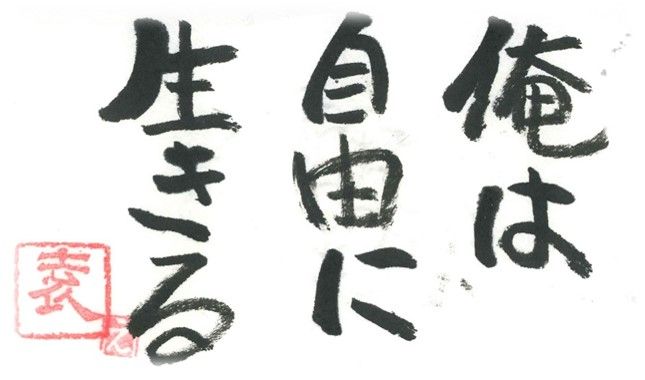 俺は
自由に
生きる